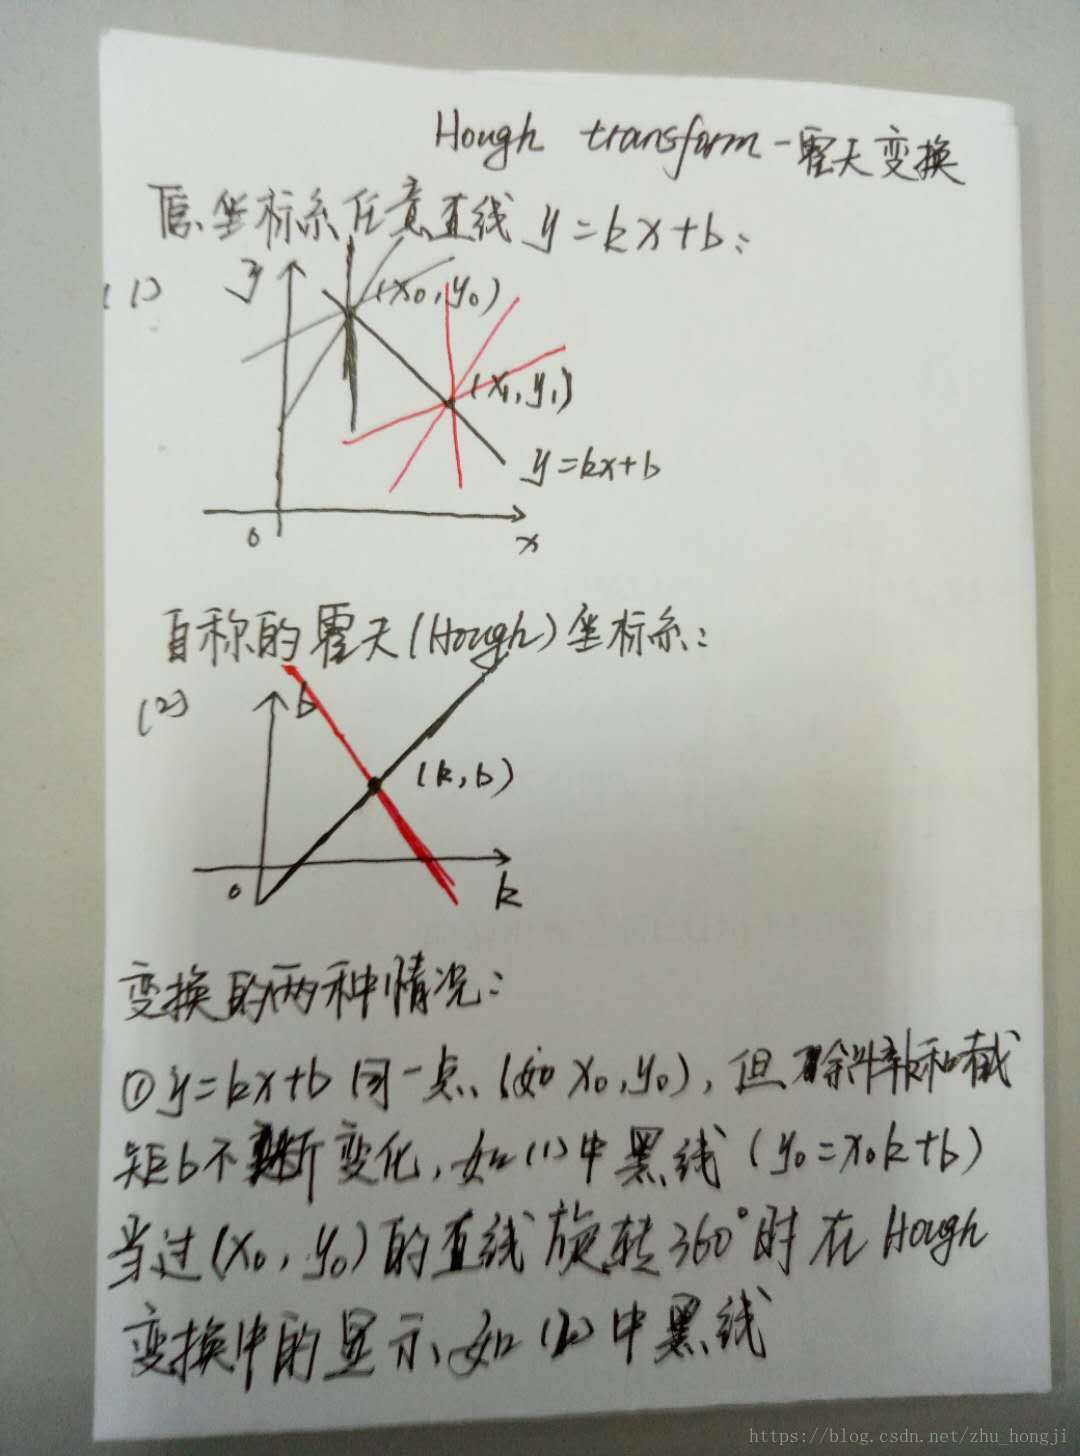 Hough transform-霍夫变换
原坐标系任意直线 y=kx+b:
(1)
y
(x₀,y₀)
(x₁,y₁)
y=kx+b
0
x
自称的霍天(Hough)坐标系:
(2)
b
(k,b)
0
k
变换的两种情况:
①y=kx+b 同一点(如x₀,y₀),但斜率k和截
矩b不断变化,如(1)中黑线(y₀=x₀k+b)
当过(x₀,y₀)的直线旋转360°时在Hough
变换中的显示,如(2)中黑线
https://blog.csdn.net/zhu_hongji